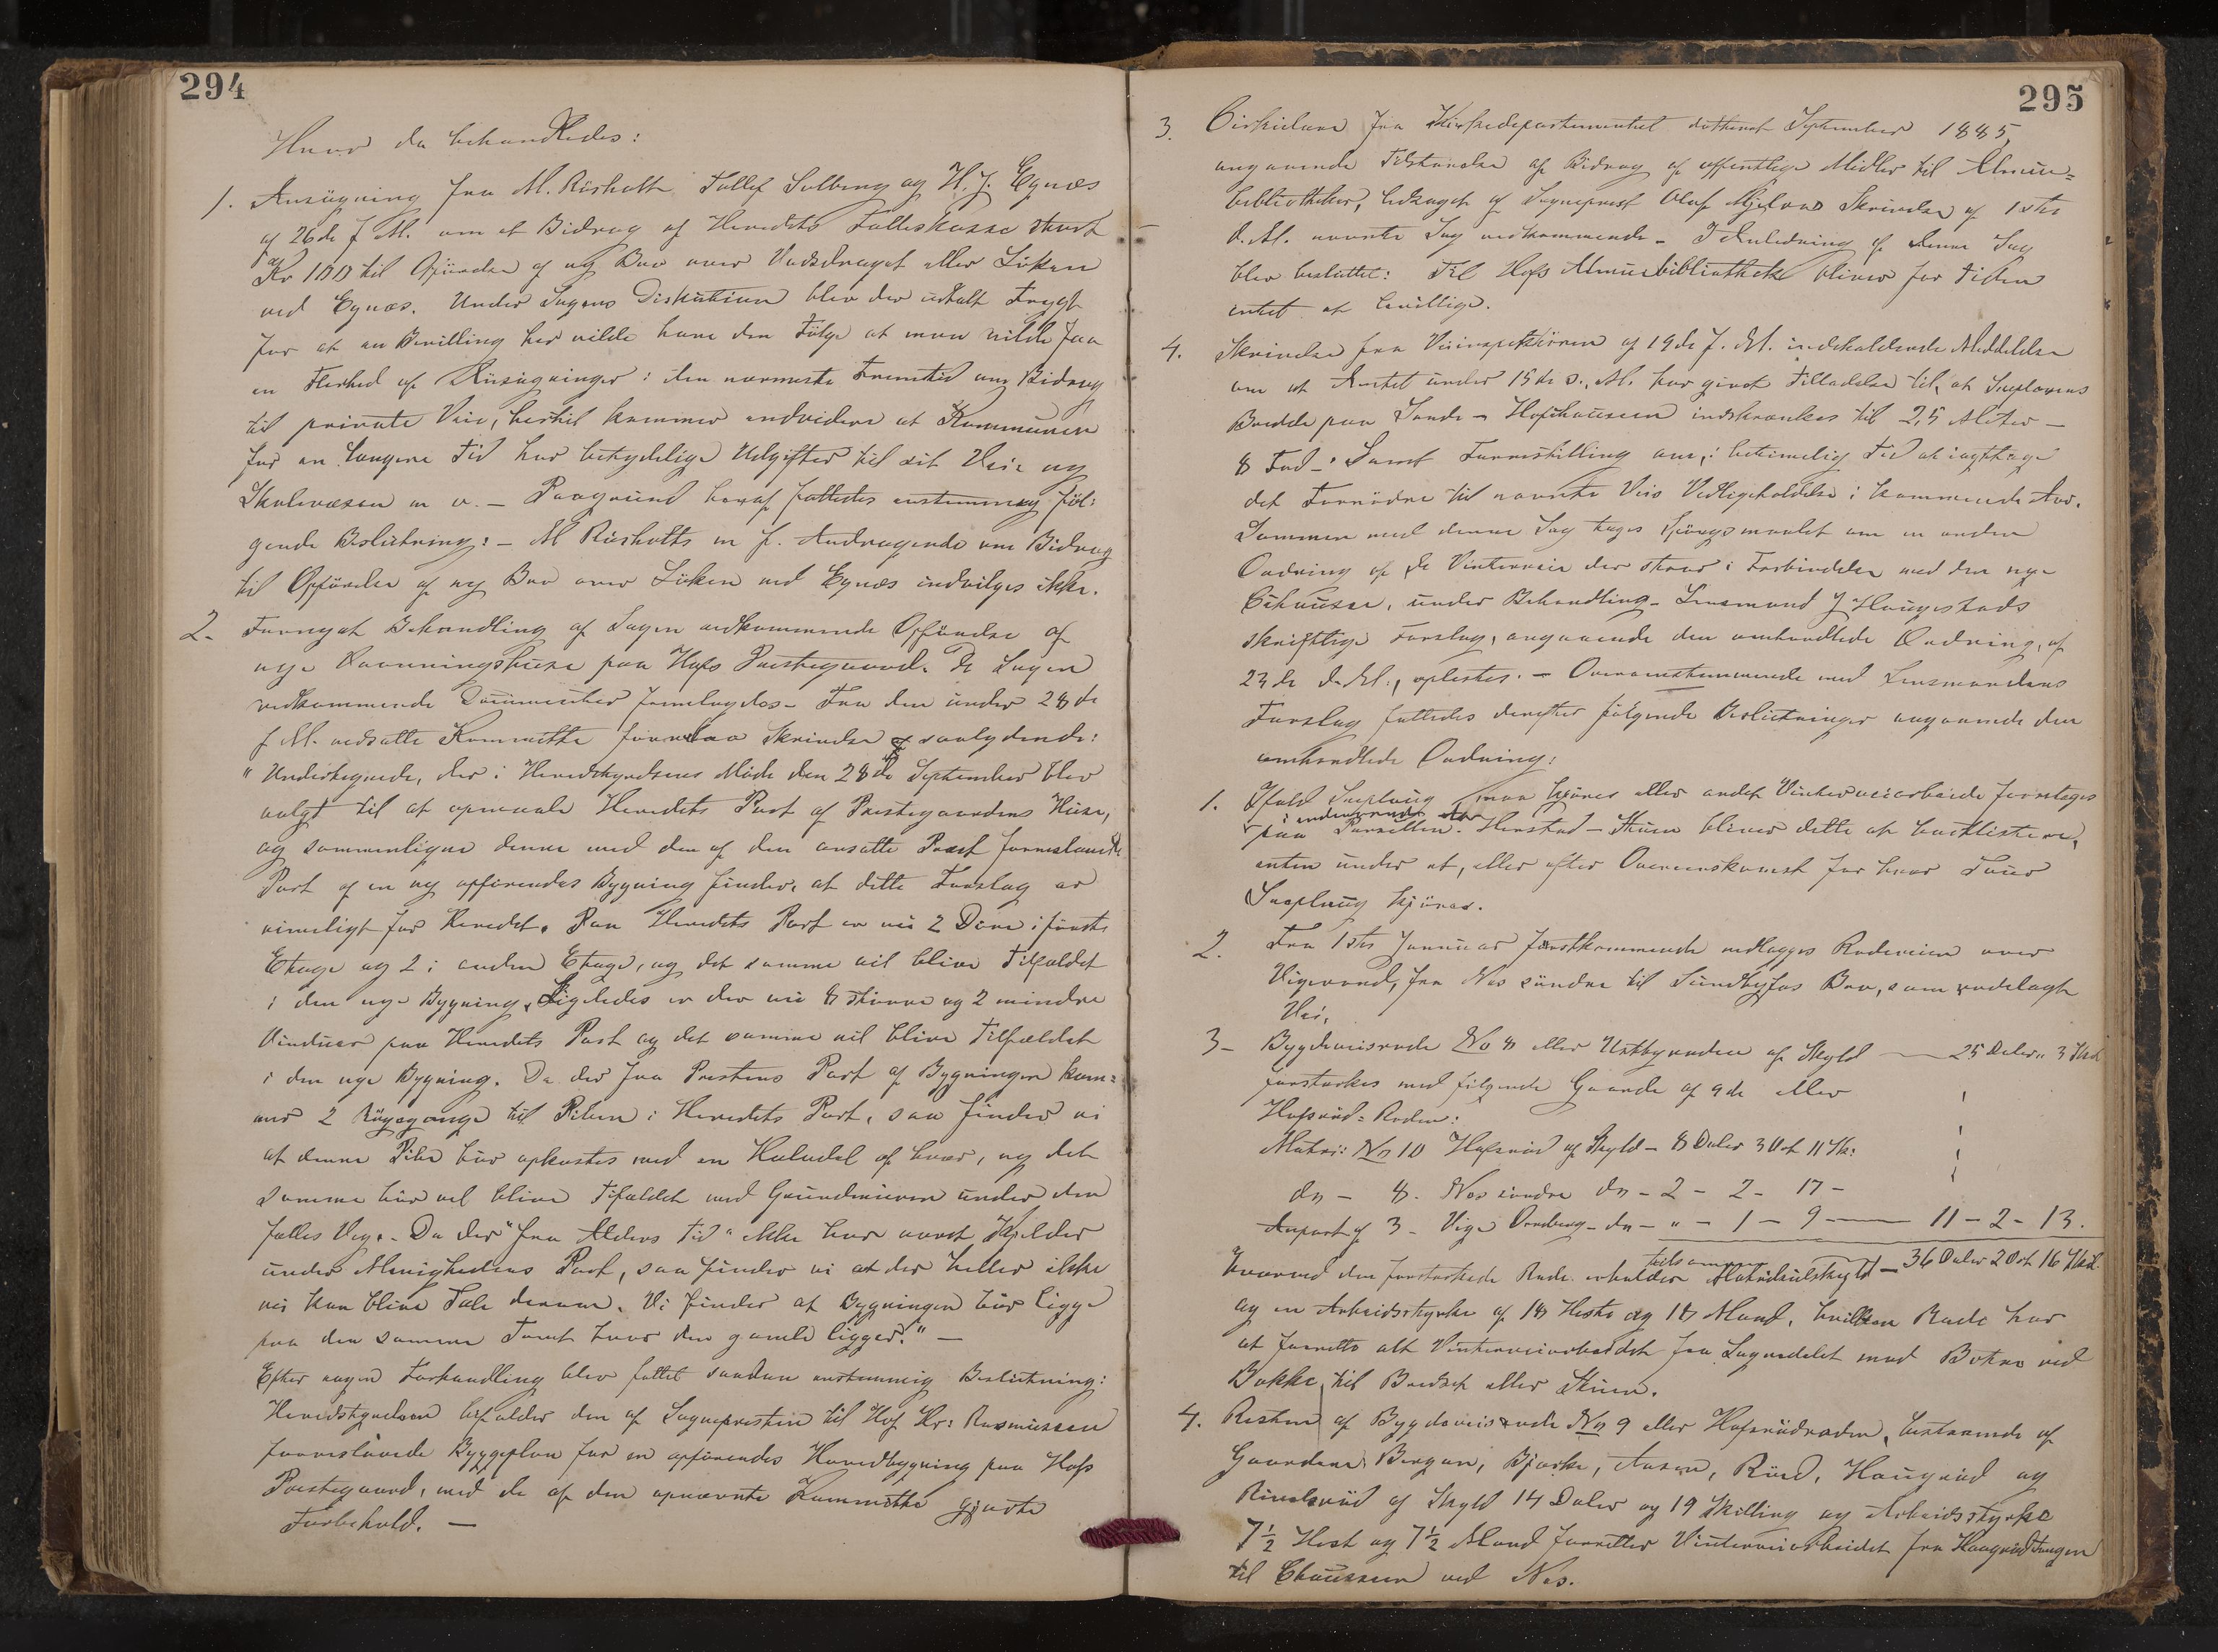 294
Hvor da behandledes:
1. Ansøgning fra M. Risholtt, Tollef Solberg og H. J. Egnæs
af 26de f. M. om et Bidrag af Herredets Fælleskasse stort
Kr 100 til Opførelse af ny Bro over Vadsdraget eller Løken
ved Egnæs. Under Sagens Diskution blev der udtalt Frygt
for at en Bevilling her vilde have den Følge at man vilde faa
en Flerhed af Ansøgninger i den nærmeste Fremtid om Bidrag
til private Veie, hertil kommer endvidere at Kommunen
for en længere Tid har betydelige Udgifter til sit Vei- og
Skolevæsen m. v. – Paagrund heraf fattedes enstemmig føl-
gende Beslutning: – M Risholtts m fl. Andragende om Bidrag
til Opførelse af ny Bro over Løken ved Egnæs indvilges ikke.
2. Fornyet Behandling af Sagen vedkommende Opførelse af
nye Vaaningshuse paa Hofs Præstegaard. De Sagen
vedkommende Documenter fremlagdes – Fra den under 28de
f M. nedsatte Kommitte forelaa Skrivelse saalydende:
"Undertegnede, der i Herredstyrelsens Møde den 28de September blev
valgt til at opmaale Herredets Part af Præstegaardens Huse,
og sammenligne denne med den af den ansatte Præst foreslaaede
Part af en ny opførendes Bygning finder, at dette Forslag er
rimeligt for Herredet. Paa Herredets Part er nu 2 Døre i første
Etage og 2 i anden Etage, og det samme vil blive Tilfældet
i den nye Bygning. Ligeledes er der nu 8 større og 2 mindre
Vinduer paa Herredets Part og det samme vil blive Tilfældet
i den nye Bygning. Da der fra Prestens Part af Bygningen kom-
mer 2 Røgegange til Piben i Herredets Part, saa finder vi
at denne Pibe bør opkostes med en Halvdel af hver, og det
samme bør vel blive Tilfældet med Grundmuren under den
fælles Væg. – Da der "fra Alders Tid" ikke har været Kjelder
under Menighedens Part, saa finder vi at der heller ikke
nu kan blive Tale derom. Vi finder at Bygningen bør ligge
paa den samme Tomt hvor den gamle ligger." –
Efter nogen Forhandling blev fattet saadan enstemmig Beslutning:
Herredstyrelsen bifalder den af Sognepresten til Hof Hr: Rasmussen
foreslaaede Byggeplan for en opførendes Hovedbygning paa Hofs
Præstegaard, med de af den opnævnte Kommitte gjorte
Forbehold. –
295
3. Cirkulære fra Kirkedepartementet dateret September 1885,
angaaende Tilstaaelse af Bidrag af offentlige Midler til Almue-
bibliotheker, ledsaget af Sogneprest Olaf Skrivelse af 1ste
d. M. nævnte Sag vedkommende – I Anledning af denne Sag
blev besluttet: Til Hofs Almuebibliothek bliver for Tiden
intet at bevillige.
4. Skrivelse fra Veiinspektøren af 19de f. M. indeholdende Meddelelse
om at Amtet under 15de s. M. har givet Tilladelse til, at Sneplovens
Bredde paa Sande – Hofschausseen indskrænkes til 2,5 Meter –
8 Fod – Samt Forestilling om, i betimelig Tid at iagttage
det Fornødne til nævnte Veis Vedligeholdelse i kommende Aar.
Sammen med denne Sag toges Spørgsmaalet om en anden
Ordning af de Vinterveie der staar i Forbindelse med den nye
Chausse, under Behandling. Lensmand J Haugestads
skriftlige Forslag, angaaende den omhandlede Ordning, af
23de d. M., oplæstes. – Overensstemmende med Lensmandens
Forslag fattedes derefter følgende Beslutninger angaaende den
omhandlede Ordning:
1. Ifald Sneploug maa kjøres eller andet Vinterveiarbeide foretages
paa Parsellen Herstad – Skuen bliver dette at bortlicitere,
enten under et, eller efter Overenskomst for hver Tour
Sneploug kjøres.
2. Fra 1ste Januar førstkommende nedlægges Rodeveien over
Vigevand, fra Nes søndre til Sundbyfos Bro, som rodelagt
Vei.
3 – Bygdeveisrode No 8 eller Ustbyroden af Skyld — 25 Daler " 3 Skil
forstærkes med følgende Gaarde af 9de eller
Hofsrud-Roden:
Matri: No 10 Hofsrud af Skyld – 8 Daler 3 Ort 11 Sk:
do – 8. Nes søndre do – 2 – 2 – 17 –
Anpart af 3 – Vige do – " – 1 – 9 — 11 – 2 – 13.
Hvorved den forstærkede Rode erholder tilsammen Matrikulskyld – 36 Daler 2 Ort 16 Skil.
og en Arbeidsstyrke af 18 Heste og 18 Mand, hvilken Rode har
at forrette alt Vinterveiarbeidet fra Sognedelet mod Botne ved
Bakke, til Bredsch eller Skuen.
4. Resten af Bygdeveisrode No 9 eller Hofsrudroden, bestaaende af
Gaardene Bergan, Bjerke, Aasen, Rød, Haugrud og
af Skyld 14 Daler og 19 Skilling og Arbeidsstyrke
7½ Hest og 7½ Mand forretter Vinterveiarbeidet fra
til Chausseen ved Nes.